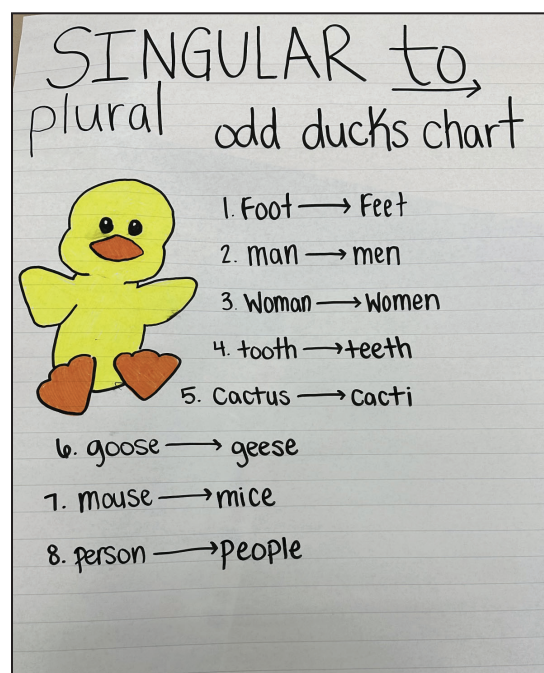 SINGULAR to
plural odd ducks chart
1. Foot → Feet
2. man → men
3. Woman → Women
4. tooth → teeth
5. Cactus → cacti
6. goose → geese
7. mouse → mice
8. person → people